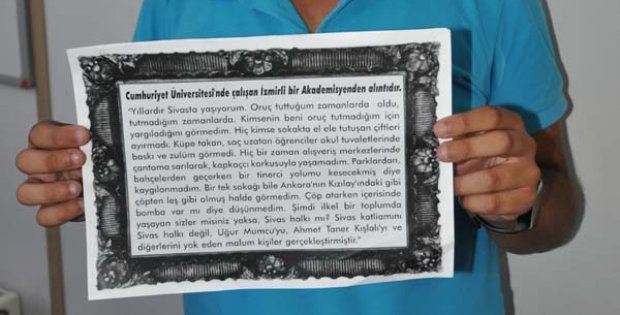 Cumhuriyet Üniversitesi'nde çalışan İzmirli bir Akademisyenden alıntıdır.
"Yıllardır Sivasta yaşıyorum. Oruç tuttuğum zamanlarda oldu,
tutmadığım zamanlarda. Kimsenin beni oruç tutmadığım için
yargıladığını görmedim. Hiç kimse sokakta el ele tutuşan çiftleri
ayırmadı. Küpe takan, saç uzatan öğrenciler okul tuvaletlerinde
baskı ve zulüm görmedi. Hiç bir zaman alışveriş merkezlerinde
çantama sarılarak, kapkaççı korkusuyla yaşamadım. Parklardan,
bahçelerden geçerken bir tinerci yolumu kesecekmiş diye
kaygılanmadım. Bir tek sokağı bile Ankara'nın Kızılay'ındaki gibi
çöpten leş gibi olmuş halde görmedim. Çöp atarken içerisinde
bomba var mı diye düşünmedim. Şimdi ilkel bir toplumda
yaşayan sizler misiniz yoksa, Sivas halkı mı? Sivas katliamını
Sivas halkı değil, Uğur Mumcu'yu, Ahmet Taner Kışlalı'yı ve
diğerlerini yok eden malum kişiler gerçekleştirmiştir."